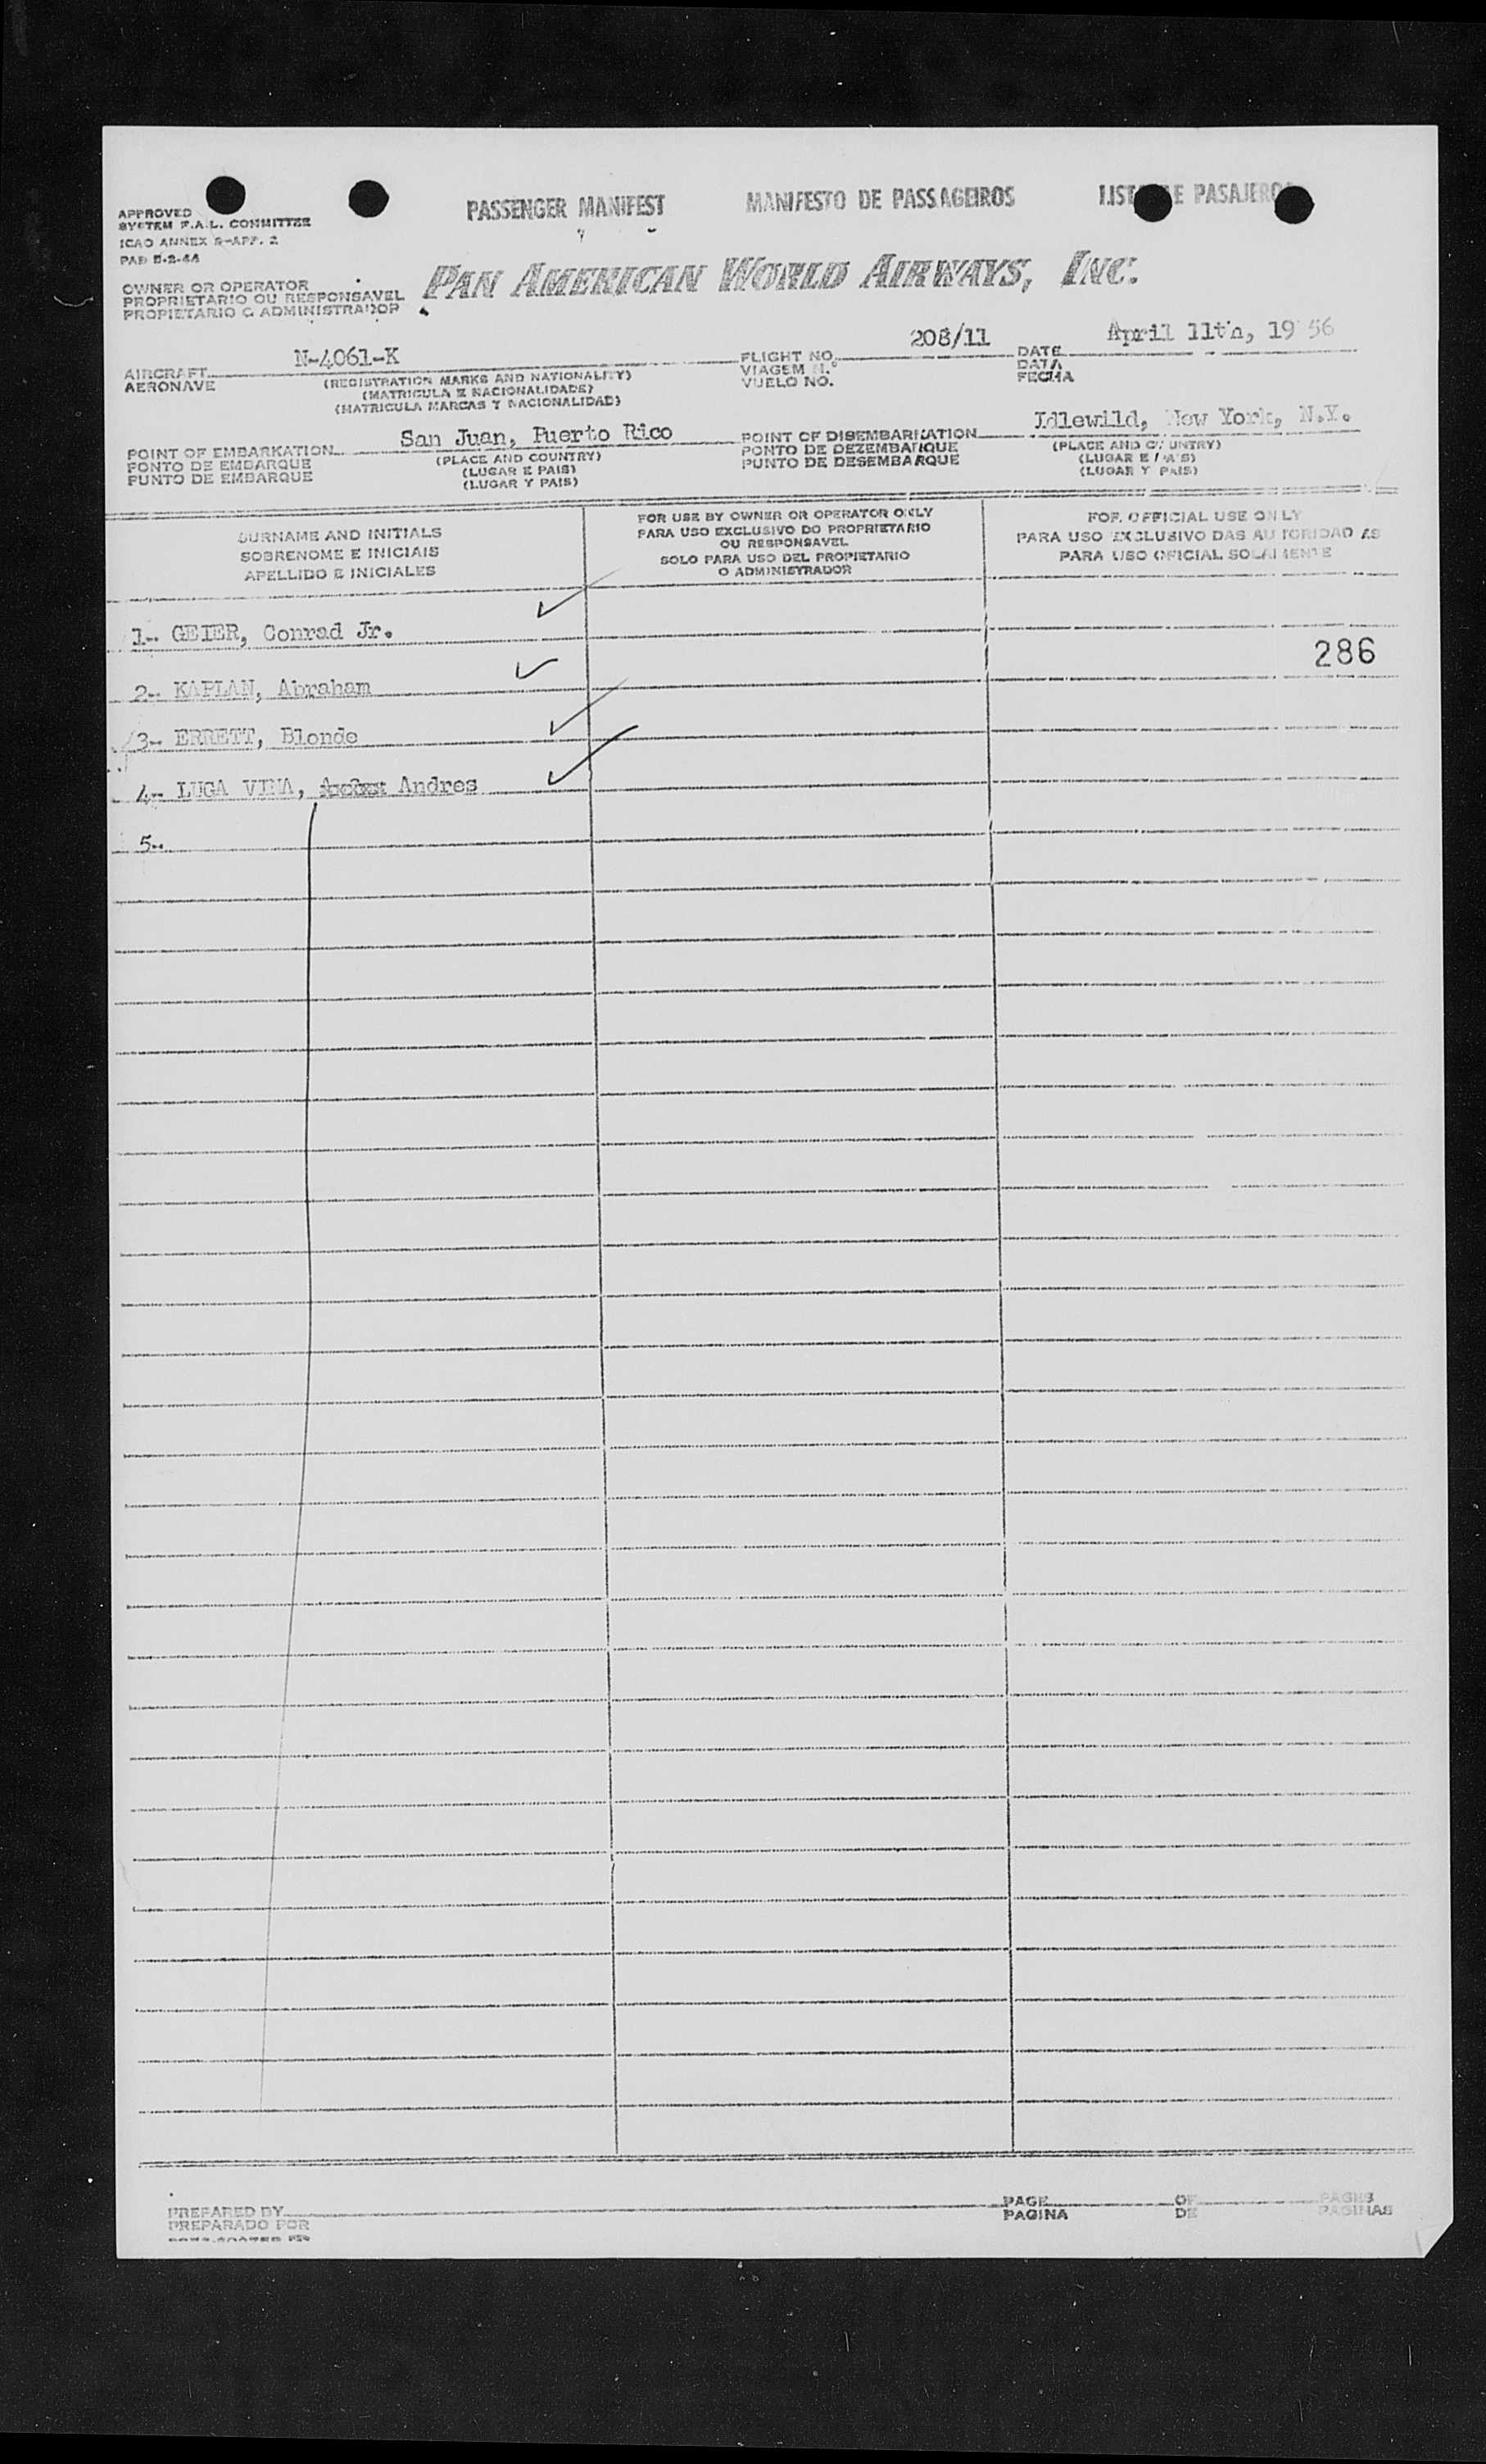 PASSENGER MANIFEST MANIFESTO DE PASSAGEIROS LISTA DE PASAJEROS
APPROVED
SYSTEM F.A.L. COMMITTEE
ICAO ANNEX 9-APP. 2
OWNER OR OPERATOR
PROPRIETARIO OU RESPONSAVEL
PROPIETARIO O ADMINISTRADOR
PAN AMERICAN WORLD AIRWAYS, INC.
AIRCRAFT N-4061-K FLIGHT NO. 208/11 DATE April 11th, 19 56
AERONAVE (REGISTRATION MARKS AND NATIONALITY) VIAGEM N.º DATA
(MATRICULA E NACIONALIDADE) VUELO NO. FECHA
(MATRICULA MARCAS Y NACIONALIDAD)
POINT OF EMBARKATION San Juan, Puerto Rico POINT OF DISEMBARKATION Idlewild, New York, N.Y.
PONTO DE EMBARQUE (PLACE AND COUNTRY) PONTO DE DEZEMBARQUE (PLACE AND COUNTRY)
PUNTO DE EMBARQUE (LUGAR E PAIS) PUNTO DE DESEMBARQUE (LUGAR E PAIS)
(LUGAR Y PAIS) (LUGAR Y PAIS)
SURNAME AND INITIALS
SOBRENOME E INICIAIS
APELLIDO E INICIALES
FOR USE BY OWNER OR OPERATOR ONLY
PARA USO EXCLUSIVO DO PROPRIETARIO
OU RESPONSAVEL
SOLO PARA USO DEL PROPIETARIO
O ADMINISTRADOR
FOR OFFICIAL USE ONLY
PARA USO EXCLUSIVO DAS AUTORIDADES
PARA USO OFICIAL SOLAMENTE
1- GEIER, Conrad Jr.
286
2- KAPLAN, Abraham
3- ERRETT, Blonde
4- LUGA VINA, Andres
5-
PREPARED BY PAGE OF PAGES
PREPARADO POR PAGINA DE PAGINAS